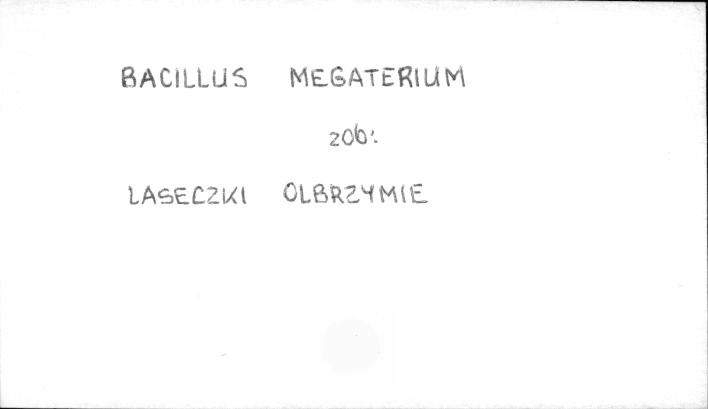 BACILLUS MEGATERIUM
zob:
LASECZKI OLBRZYMIE